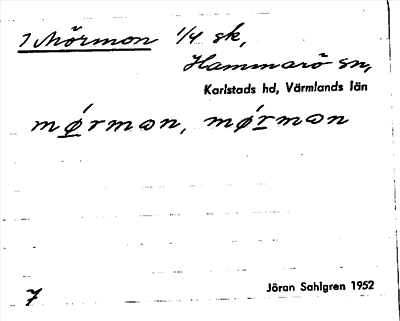 7 Mörmon 1/4 sk,
Hammarö sn,
Karlstads hd, Värmlands län
mǿrmɔn, mǿrmɔn
7 Jöran Sahlgren 1952